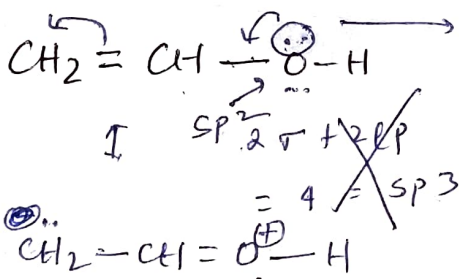 CH₂ = CH — Ö — H
I SP² 2 σ + 2lp
= 4 = SP3
CH₂ — CH = O⊕ — H